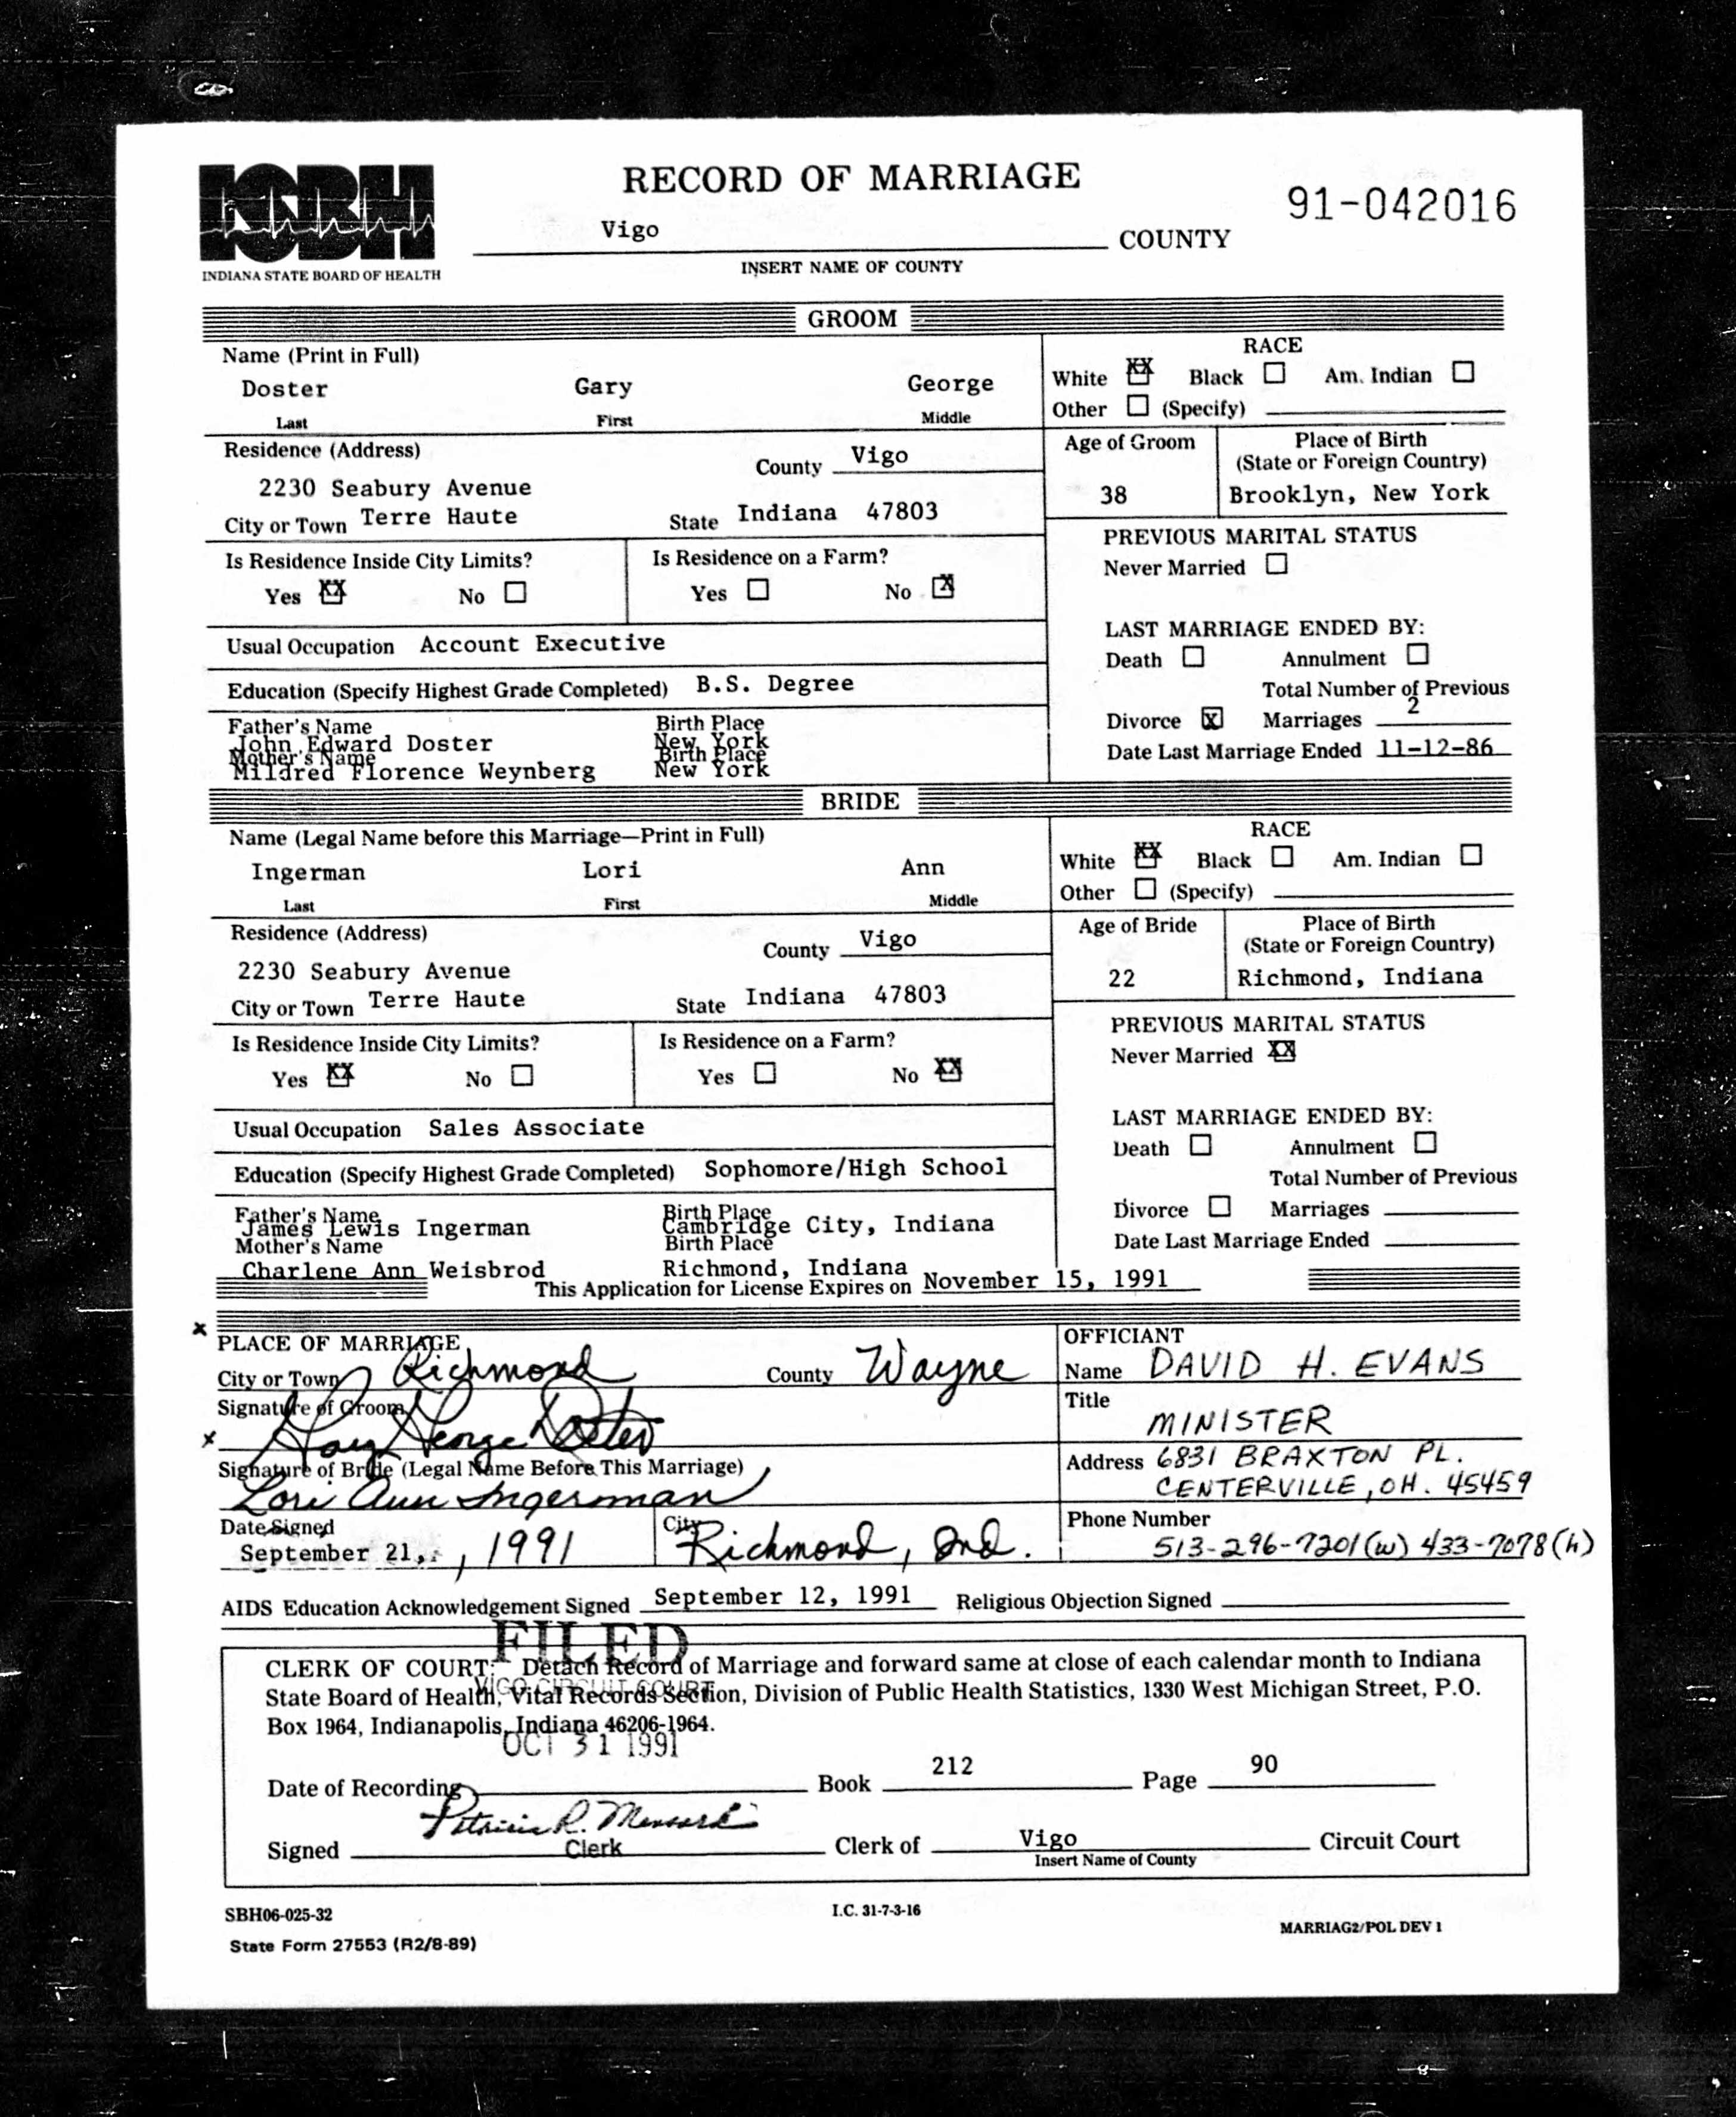 ISBH
INDIANA STATE BOARD OF HEALTH
RECORD OF MARRIAGE
91-042016
Vigo COUNTY
INSERT NAME OF COUNTY
GROOM
Name (Print in Full)
Doster Gary George
Last First Middle
RACE
White XX Black Am. Indian
Other (Specify)
Residence (Address)
County Vigo
2230 Seabury Avenue
City or Town Terre Haute State Indiana 47803
Age of Groom
38
Place of Birth
(State or Foreign Country)
Brooklyn, New York
Is Residence Inside City Limits?
Yes XX No
Is Residence on a Farm?
Yes No X
PREVIOUS MARITAL STATUS
Never Married
Usual Occupation Account Executive
Education (Specify Highest Grade Completed) B.S. Degree
LAST MARRIAGE ENDED BY:
Death Annulment
Total Number of Previous
Divorce X Marriages 2
Date Last Marriage Ended 11-12-86
Father's Name Birth Place
John Edward Doster New York
Mother's Name Birth Place
Mildred Florence Weynberg New York
BRIDE
Name (Legal Name before this Marriage—Print in Full)
Ingerman Lori Ann
Last First Middle
RACE
White XX Black Am. Indian
Other (Specify)
Residence (Address)
County Vigo
2230 Seabury Avenue
City or Town Terre Haute State Indiana 47803
Age of Bride
22
Place of Birth
(State or Foreign Country)
Richmond, Indiana
Is Residence Inside City Limits?
Yes XX No
Is Residence on a Farm?
Yes No XX
PREVIOUS MARITAL STATUS
Never Married XX
Usual Occupation Sales Associate
Education (Specify Highest Grade Completed) Sophomore/High School
LAST MARRIAGE ENDED BY:
Death Annulment
Total Number of Previous
Divorce Marriages
Date Last Marriage Ended
Father's Name Birth Place
James Lewis Ingerman Cambridge City, Indiana
Mother's Name Birth Place
Charlene Ann Weisbrod Richmond, Indiana
This Application for License Expires on November 15, 1991
x
PLACE OF MARRIAGE
City or Town Richmond County Wayne
Signature of Groom
x Gary George Doster
Signature of Bride (Legal Name Before This Marriage)
Lori Ann Ingerman
Date Signed
September 21, , 1991
City
Richmond, Ind.
OFFICIANT
Name DAVID H. EVANS
Title
MINISTER
Address 6831 BRAXTON PL.
CENTERVILLE, OH. 45459
Phone Number
513-296-7201(w) 433-7078(h)
AIDS Education Acknowledgement Signed September 12, 1991 Religious Objection Signed
FILED
CLERK OF COURT: Detach Record of Marriage and forward same at close of each calendar month to Indiana
VIGO CIRCUIT COURT
State Board of Health, Vital Records Section, Division of Public Health Statistics, 1330 West Michigan Street, P.O.
Box 1964, Indianapolis, Indiana 46206-1964.
OCT 31 1991
Date of Recording Book 212 Page 90
Signed Patricia R. Clerk of Vigo Circuit Court
Clerk Insert Name of County
SBH06-025-32
I.C. 31-7-3-16
MARRIAG2/POL DEV 1
State Form 27553 (R2/8-89)